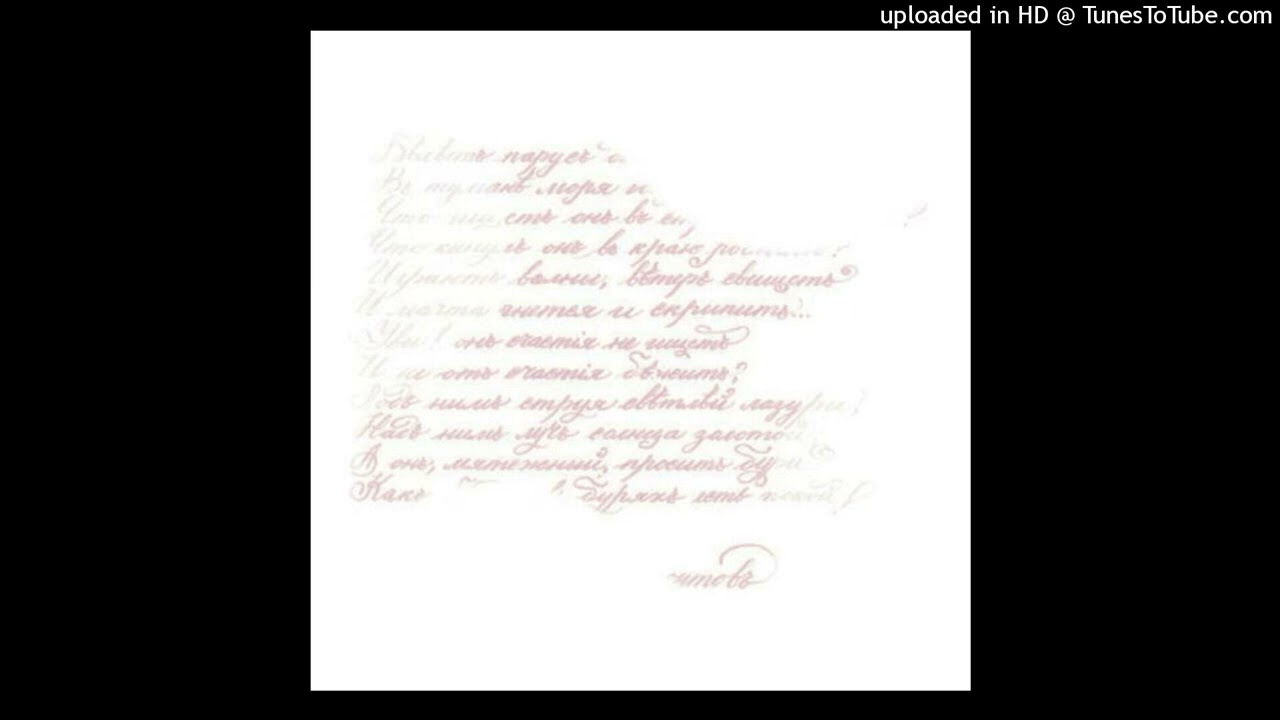 uploaded in HD @ TunesToTube.com
парусъ
Въ туманѣ моря
онъ въ
Что кинулъ онъ въ краю ?
Играютъ волны, вѣтеръ свищетъ
И мачта гнется и скрипитъ...
Увы! онъ счастія не ищетъ
И не отъ счастія бѣжитъ?
Подъ нимъ струя свѣтлѣй лазури
Надъ нимъ лучъ солнца золотой
А онъ, мятежный, проситъ бури
Какъ буряхъ есть покой!